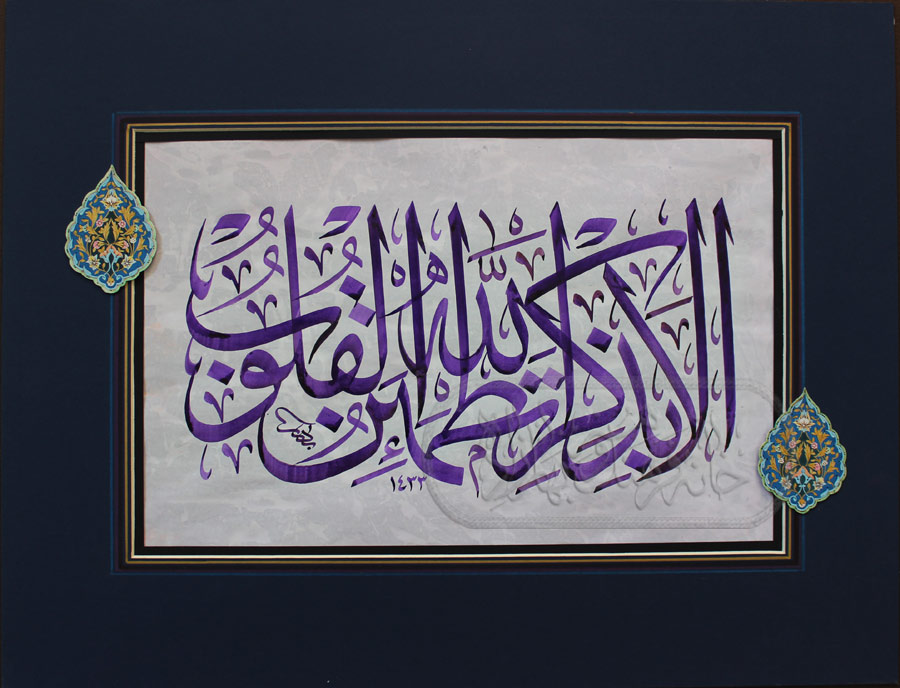 الا بذکر الله تطمئن القلوب
١٤٣٣